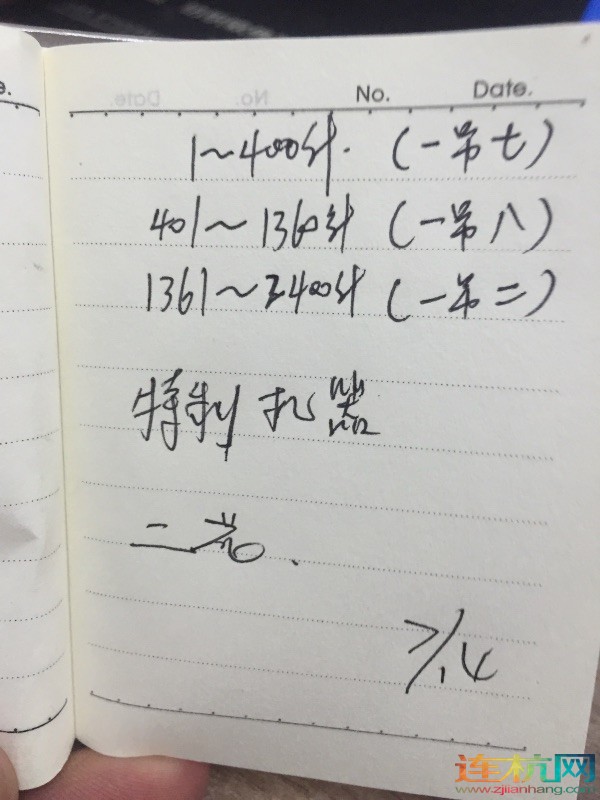 No. Date.
1~400针. (一吊七)
401~1360针 (一吊八)
1361~2400针 (一吊二)
特制 扎器
二党.
7/14
连杭网
www.zjianhang.com